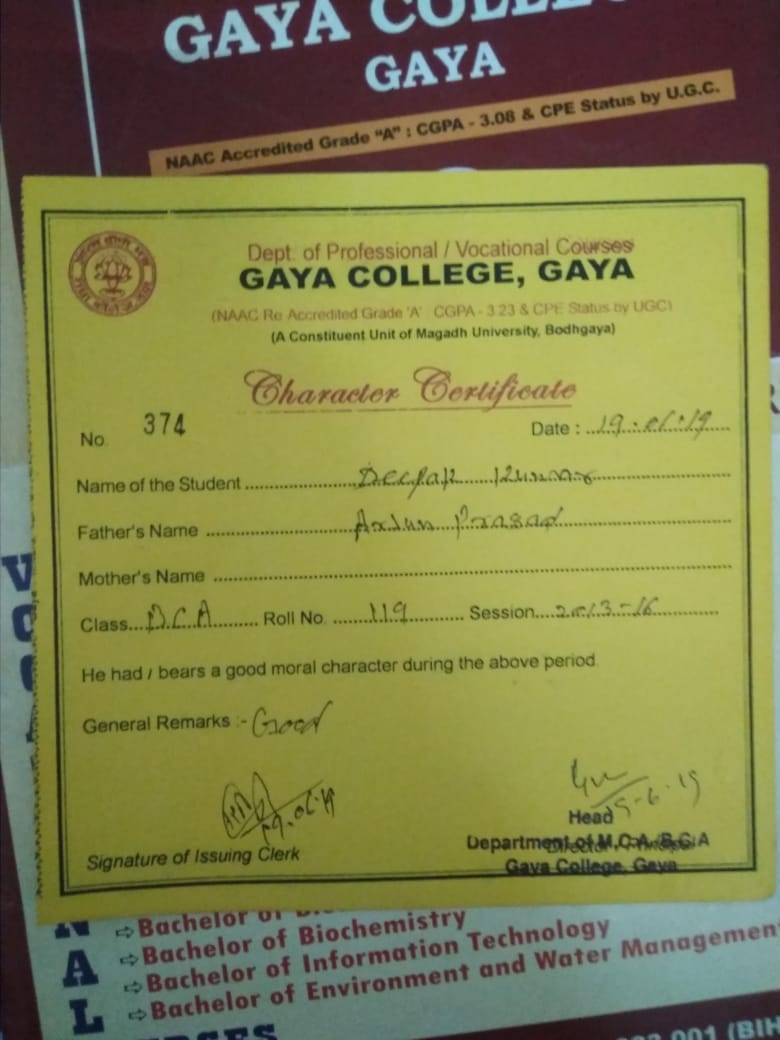 GAYA COLLEG
GAYA
NAAC Accredited Grade "A" : CGPA - 3.08 & CPE Status by U.G.C.
Dept. of Professional / Vocational Courses
GAYA COLLEGE, GAYA
(NAAC Re Accredited Grade 'A' CGPA - 3.23 & CPE Status by UGC)
(A Constituent Unit of Magadh University, Bodhgaya)
Character Certificate
No. 374 Date :
Name of the Student Deepak Kumar
Father's Name Arjun Prasad
Mother's Name
Class Roll No. 119 Session 2013-16
He had / bears a good moral character during the above period.
General Remarks :- Good
19-6-19
Head
Department of M.C.A./B.C.A
Signature of Issuing Clerk
Gaya College, Gaya
N
A
L
Bachelor of
Bachelor of Biochemistry
Bachelor of Information Technology
Bachelor of Environment and Water Managemen
001 (BIH